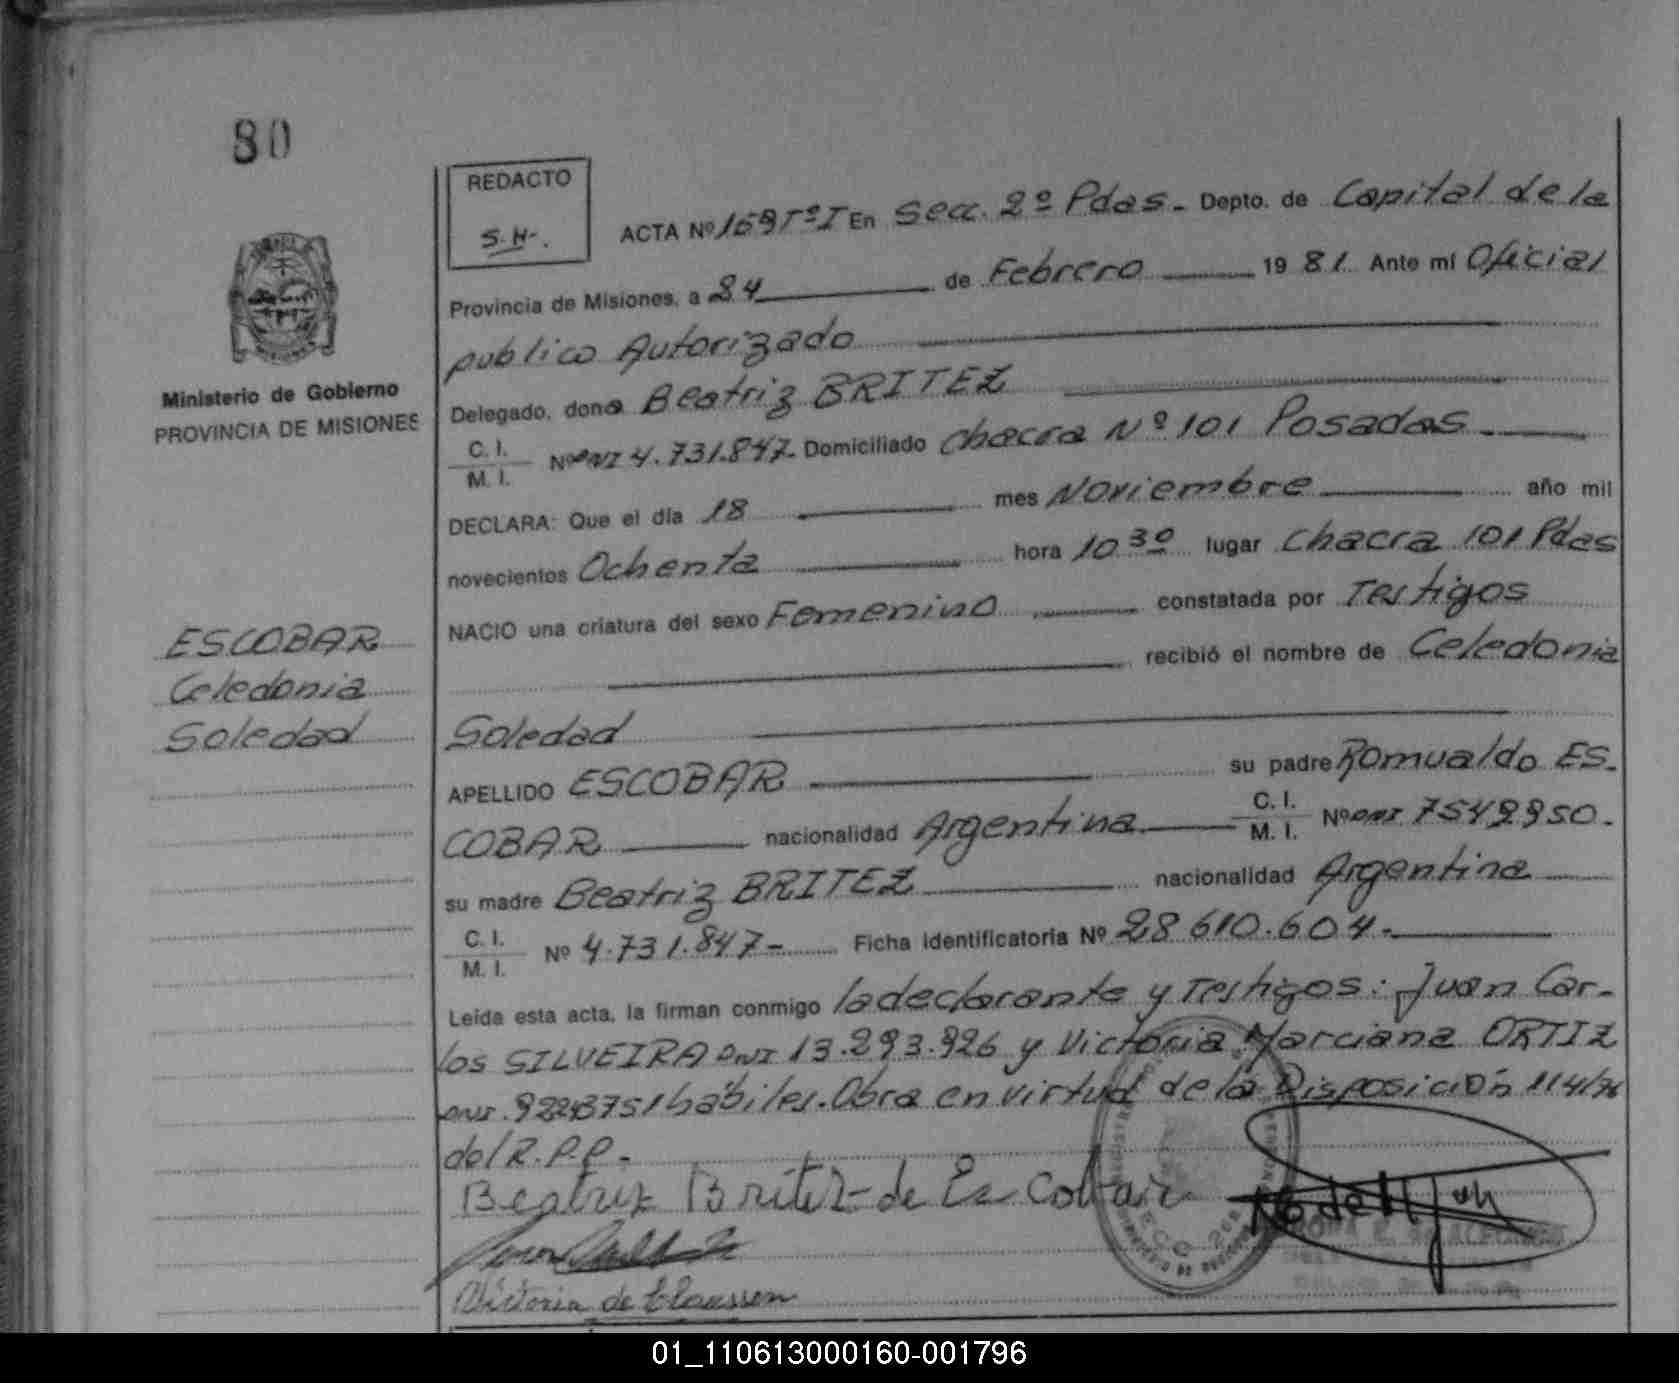 80
REDACTO
S.H-.
ACTA Nº 159 Tº I En Secc. 2º Pdas. Depto. de Capital de la
Provincia de Misiones, a 24 de Febrero 19 81 Ante mí Oficial
publico Autorizado
Ministerio de Gobierno
PROVINCIA DE MISIONES
Delegado, dona Beatriz BRITEZ
C. I.
M. I. Nº DNI 4.731.847- Domiciliado Chacra Nº 101 Posadas
DECLARA: Que el día 18 mes Noviembre año mil
novecientos Ochenta hora 10 30 lugar Chacra 101 Pdas
NACIO una criatura del sexo Femenino constatada por Testigos
recibió el nombre de Celedonia
ESCOBAR
Celedonia
Soledad
Soledad
APELLIDO ESCOBAR su padre Romualdo ES-
COBAR nacionalidad Argentina C. I.
M. I. Nº DNI 7549950.
su madre Beatriz BRITEZ nacionalidad Argentina
C. I.
M. I. Nº 4.731.847- Ficha identificatoria Nº 28610.604.
Leída esta acta, la firman conmigo la declarante y Testigos: Juan Car-
los SILVEIRA DNI 13.293.926 y Victoria Marciana ORTIZ
DNI. hábiles. Obra en virtud de la Disposición 114/76
del R.P.P.-
Beatriz Britez de Escobar
Victoria de Claussen
01_110613000160-001796